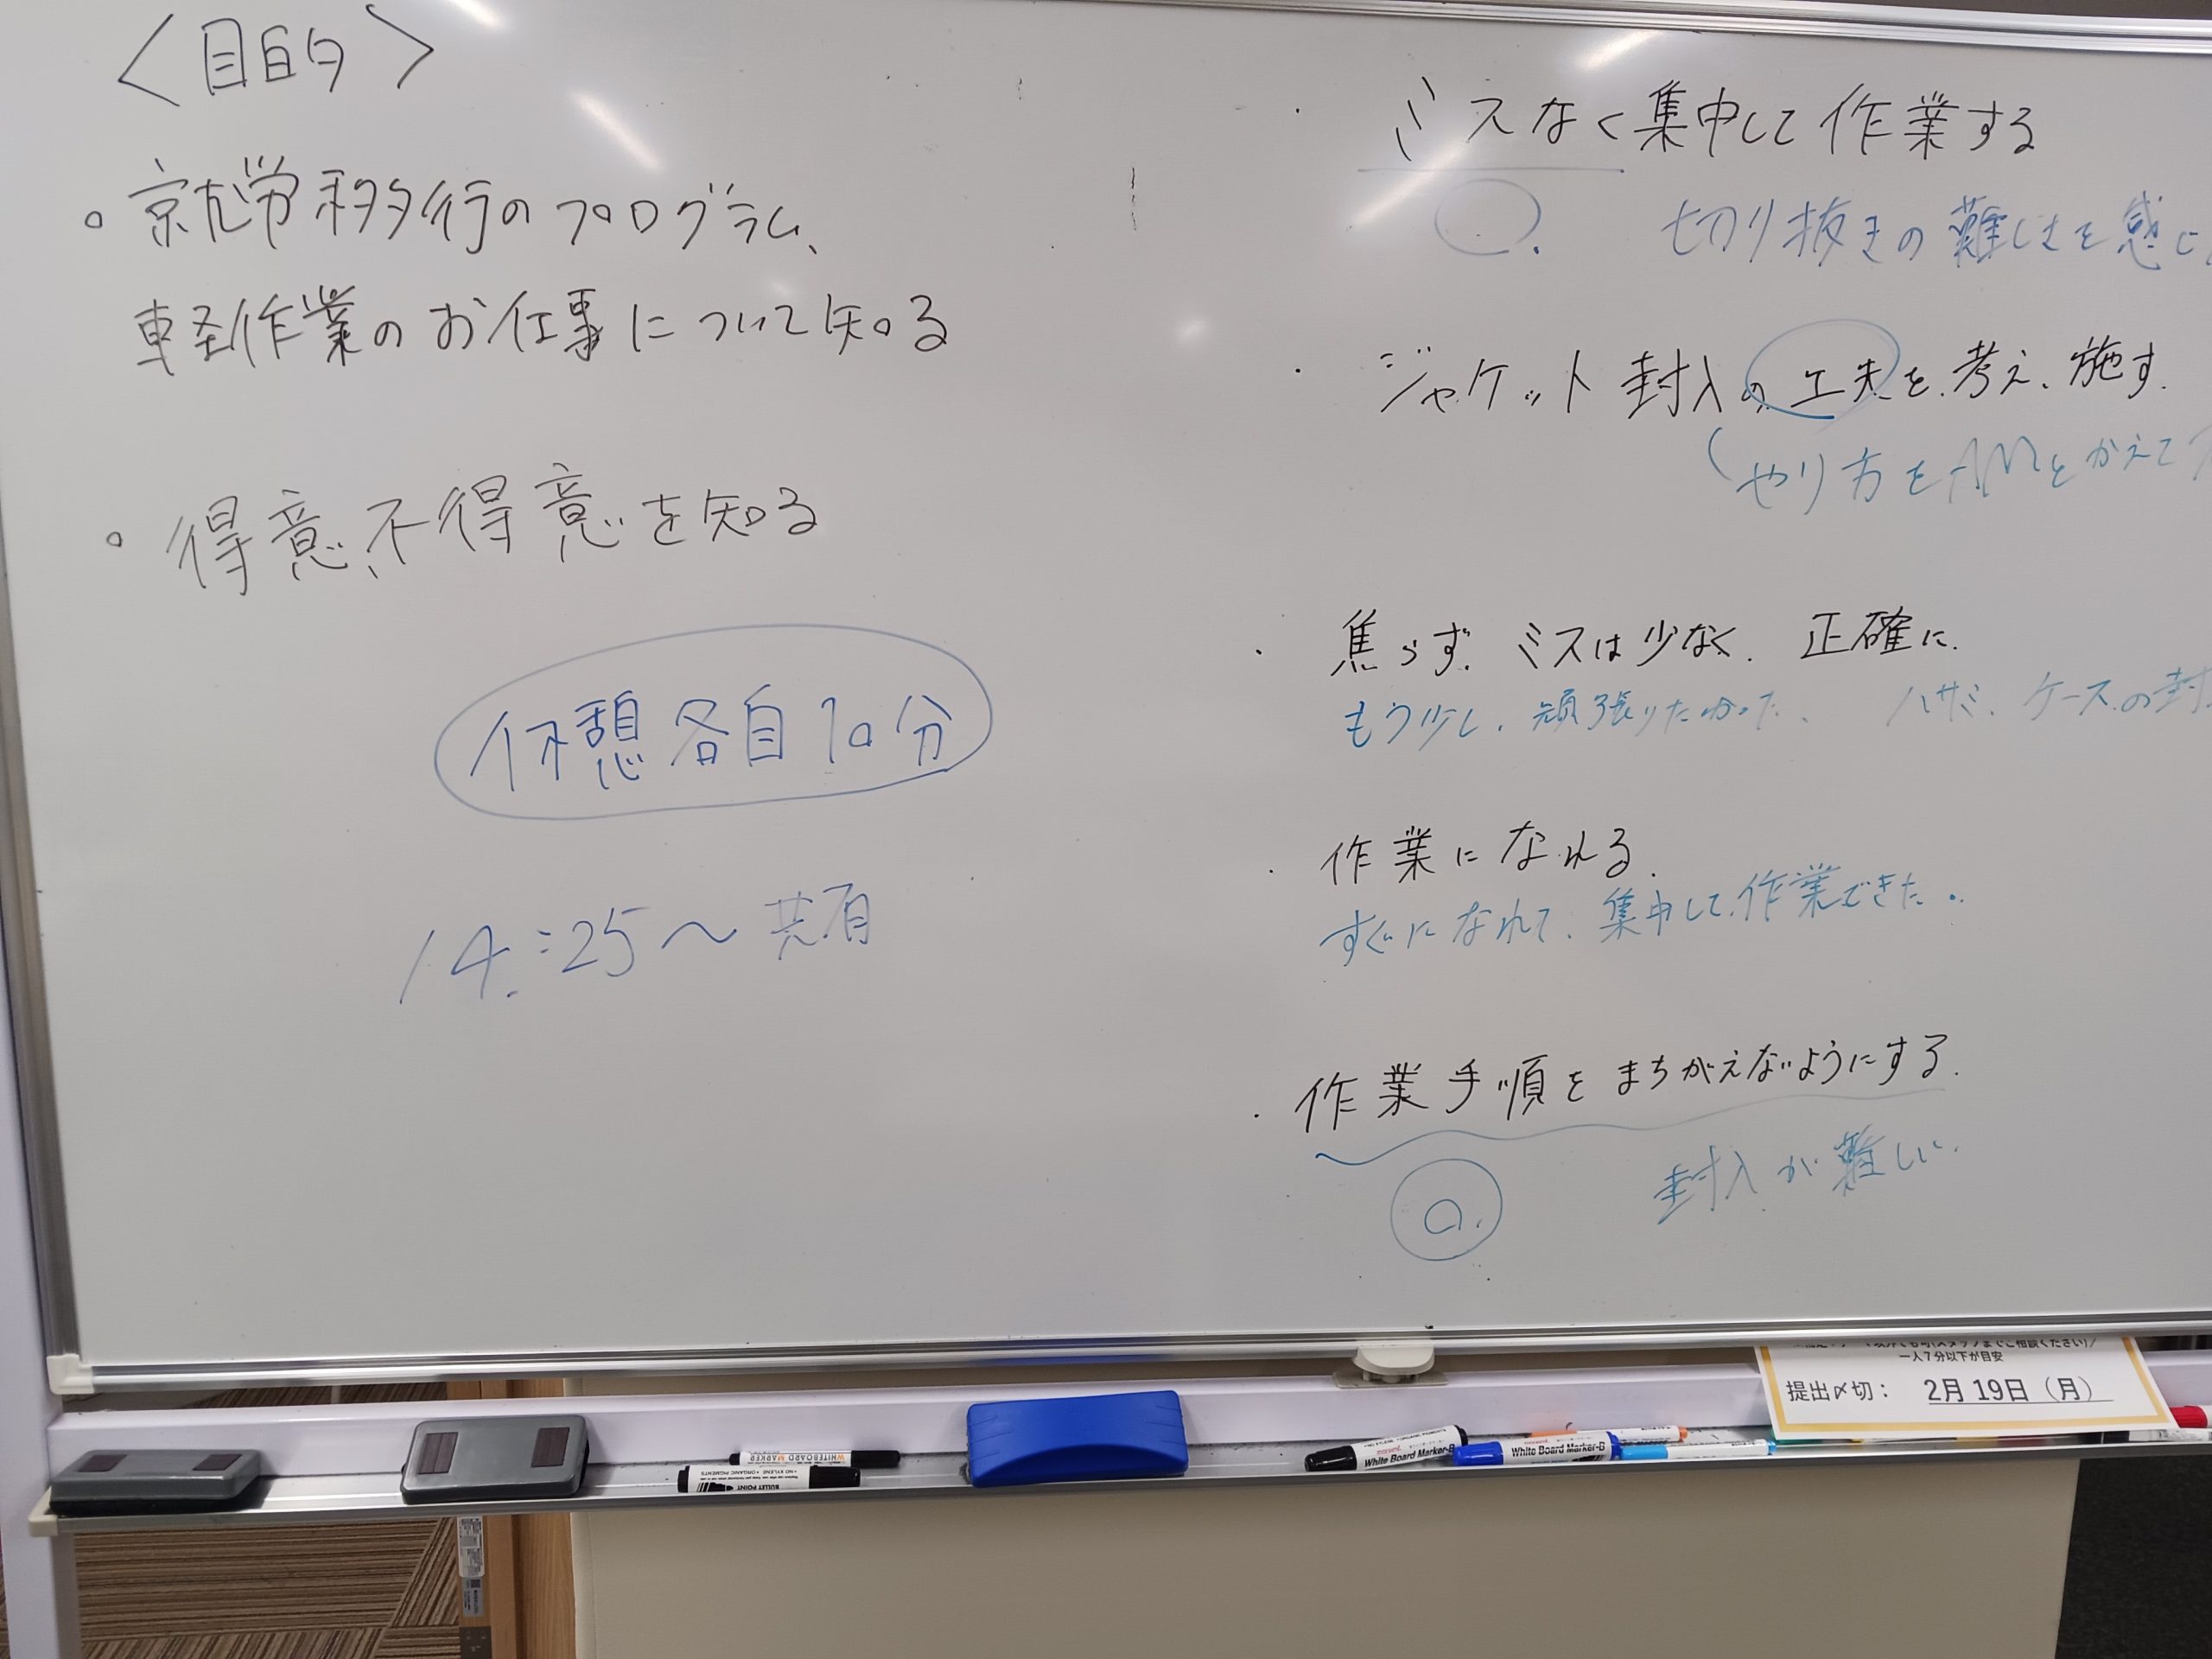 ＜目的＞
。就労移行のプログラム、
軽作業のお仕事について知る
。得意、不得意を知る
休憩各自10分
14:25～共有
・ミスなく集中して作業する
○. 切り抜きの難しさを感じ
・ジャケット封入の工夫を考え、施す.
やり方を とかえて
・焦らず. ミスは少なく. 正確に.
もう少し、頑張りたかった、 ハサミ、ケースの封
・作業になれる.
すぐになれて、集中して作業できた.
・作業手順をまちがえないようにする.
封入が難しい.
一人7分以下が目安
提出〆切： 2月19日（月）
WHITEBOARD MARKER
BULLET POINT
White Board Marker-B
White Board Marker-B